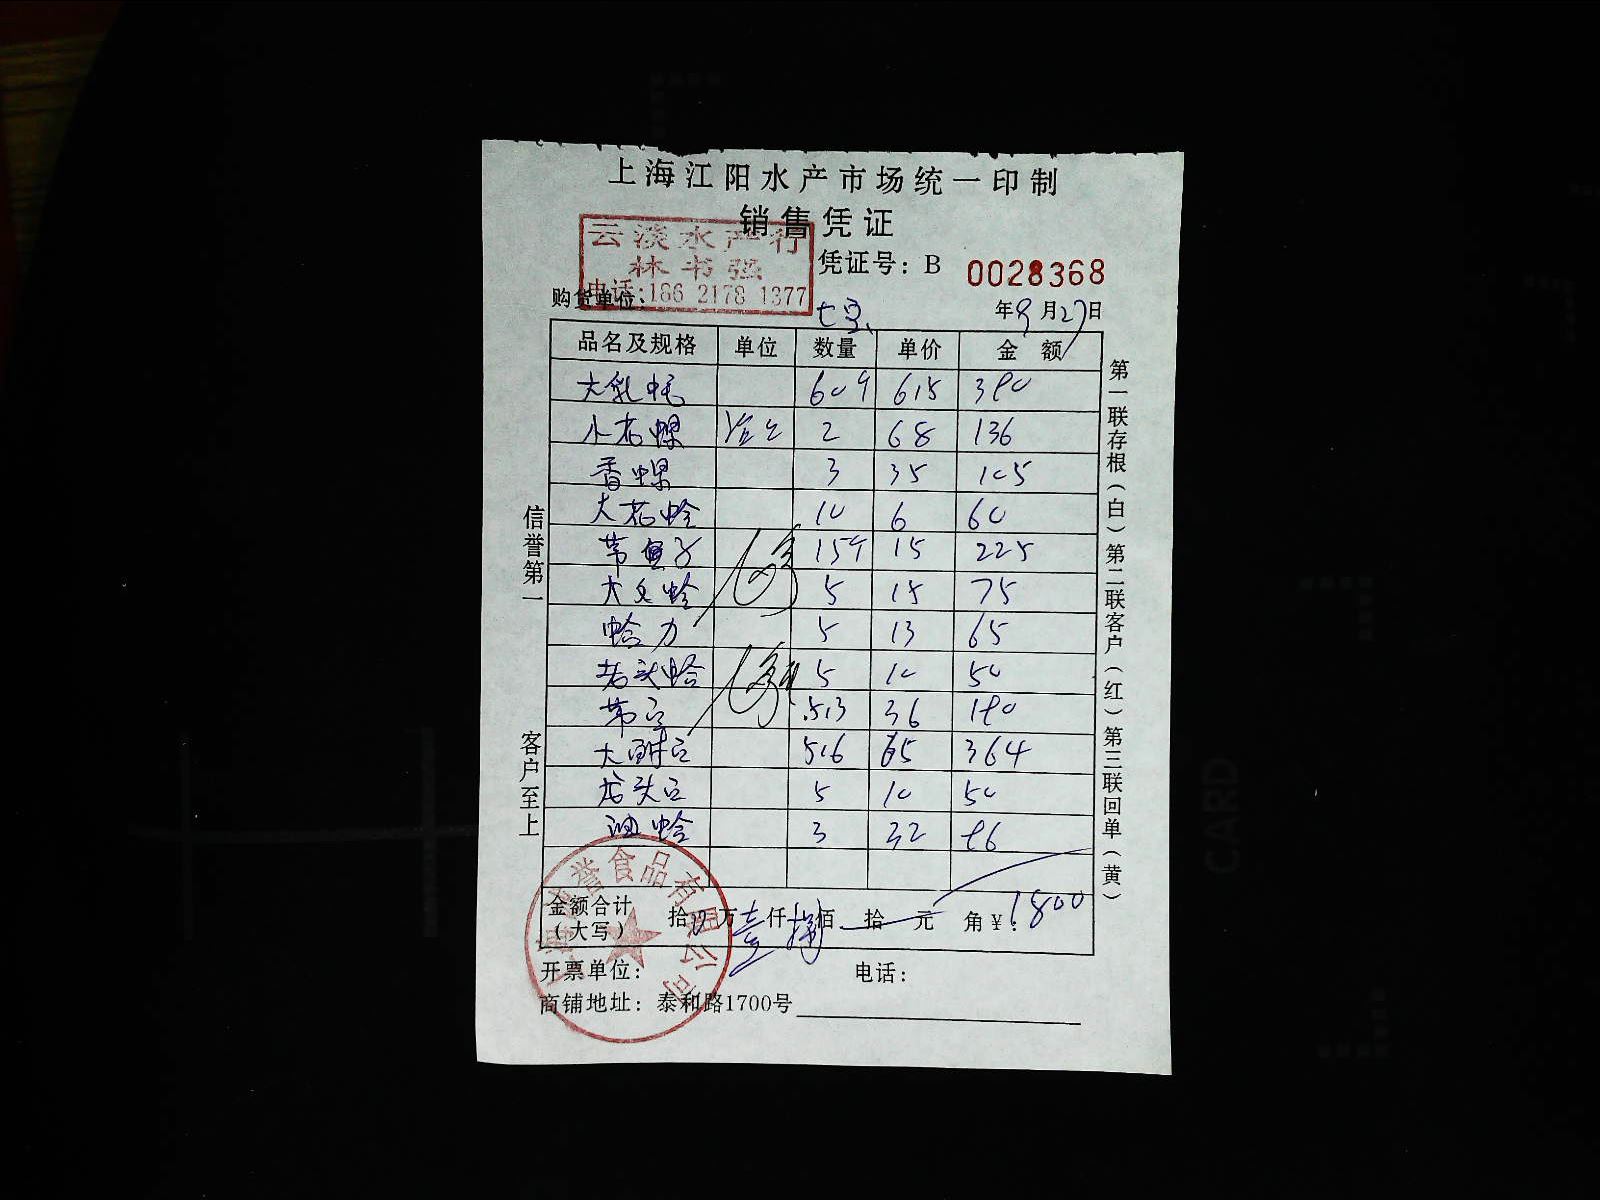 上海江阳水产市场统一印制
销售凭证
云淡水产行
林书强
电话:186 2178 1377
凭证号：B 0028368
购货单位： 七宝 年9月27日
品名及规格 单位 数量 单价 金额
大乳蚝 609 615 390
小花螺 2 68 136
香螺 3 35 105
大花蛤 10 6 60
带鱼子 159 15 225
大文蛤 5 15 75
蛤力 5 13 65
老头蛤 5 10 50
带 513 36 180
大 516 65 364
龙头 5 10 50
油蛤 3 32 96
金额合计（大写） 拾 万壹仟捌佰 拾 元 角 ¥：1800
开票单位： 电话：
商铺地址：泰和路1700号
信誉第一
客户至上
第一联存根（白）第二联客户（红）第三联回单（黄）
誉食品有限公司